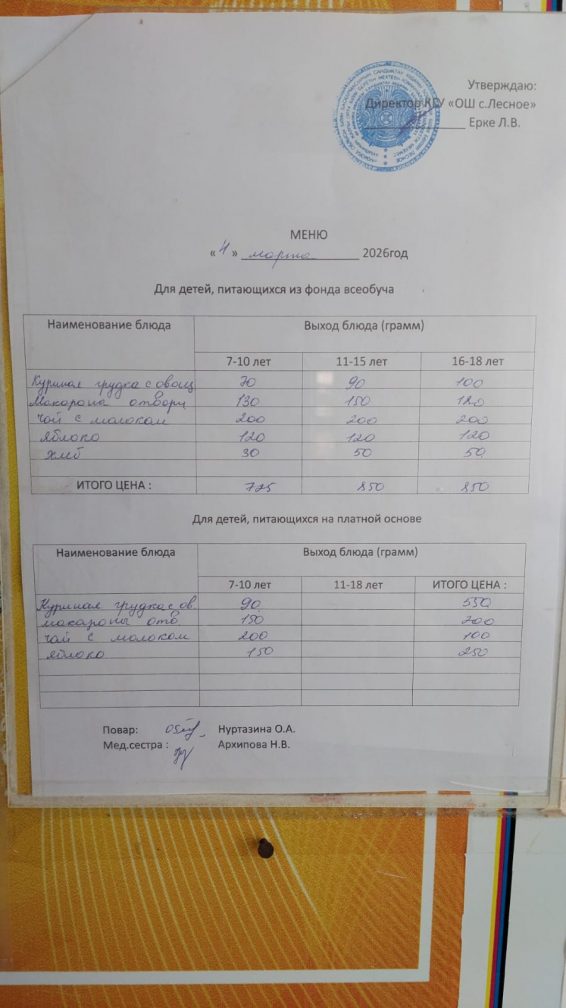 Утверждаю:
Директор КГУ «ОШ с.Лесное»
Ерке Л.В.
МЕНЮ
« 4 » марта 2026год
Для детей, питающихся из фонда всеобуча
Наименование блюда Выход блюда (грамм)
7-10 лет 11-15 лет 16-18 лет
Куриная грудка с овощ 70 90 100
Макароны отварн 130 150 120
чай с молоком 200 200 200
яблоко 120 120 120
хлеб 30 50 50
ИТОГО ЦЕНА : 725 850 850
Для детей, питающихся на платной основе
Наименование блюда Выход блюда (грамм)
7-10 лет 11-18 лет ИТОГО ЦЕНА :
Куриная грудка с ов. 90 550
макароны отв 150 200
чай с молоком 200 100
яблоко 150 250
Повар: Нуртазина О.А.
Мед.сестра : Архипова Н.В.